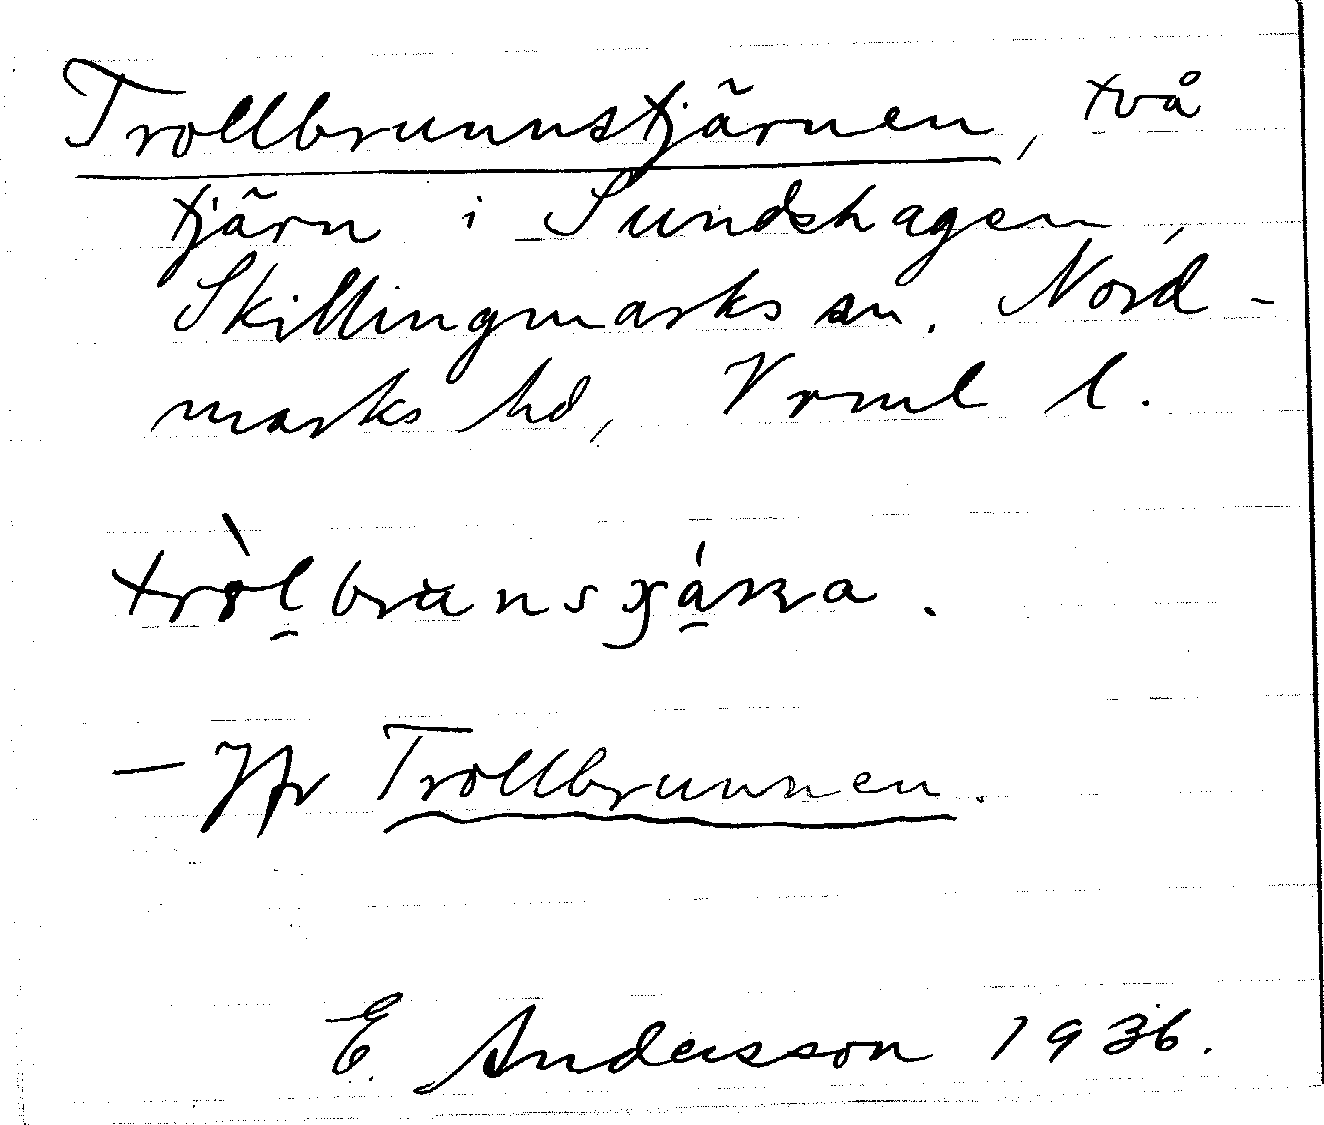 Trollbrunnstjärnen, två
tjärn i Sundshagen,
Skillingmarks sn. Nord-
marks hd, Vrml l.
– Jfr Trollbrunnen.
E. Andersson 1936.